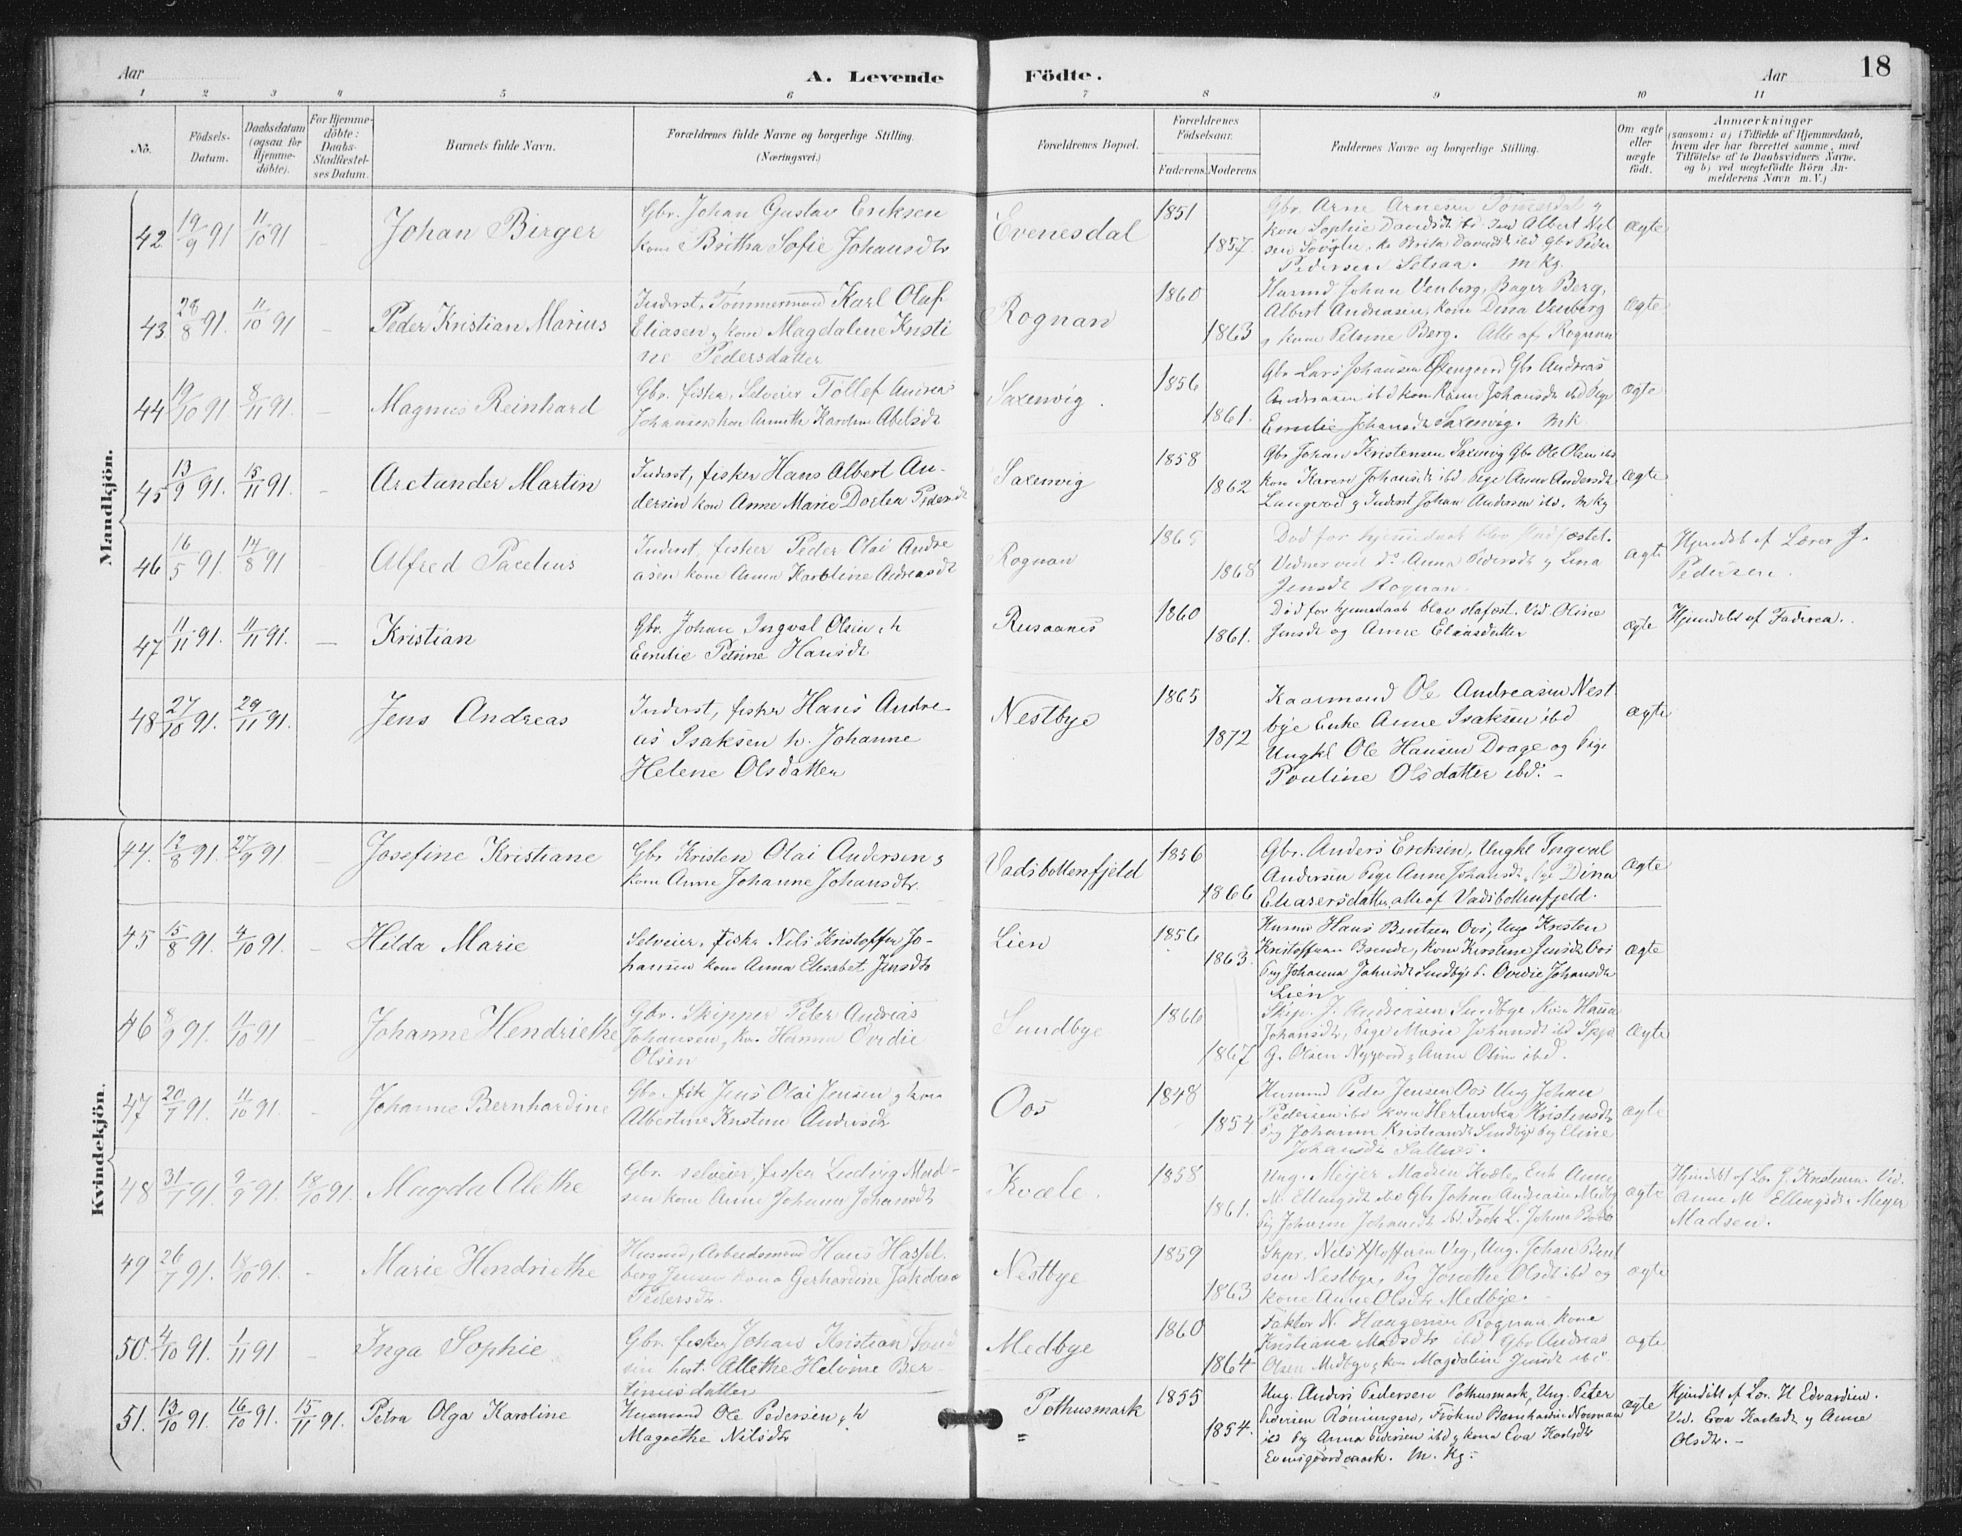 Aar
A. Levende
Födte.
Aar
18
1 2 3 4 5 6 7 8 9 10 11
No.
Födsels-
Datum.
Daabsdatum
(ogsaa for
Hjemme-
döbte).
For Hjemme-
döbte:
Daabs-
Stadfæstel-
ses Datum.
Barnets fulde Navn.
Forældrenes fulde Navne og borgerlige Stilling.
(Næringsvei.)
Forældrenes Bopæl.
Forældrenes
Födselsaar.
Faderens Moderens
Faddernes Navne og borgerlige Stilling.
Om ægte
eller
uægte
födt.
Anmærkninger
(saasom: a) i Tilfælde af Hjemmedaab,
hvem der har forrettet samme, med
Tilföielse af to Daabsvidners Navne.
og b) ved uægtefödte Börn An-
melderens Navn m. V.)
Mandkjön.
42 19/9 91 11/10 91 Johan Birger
Gbr. Johan Gustav Eriksen
kone Britha Sofie Johansdtr
Evenesdal 1851 1857
Gbr. Arne Arnesen
kone Sophie Davidsdt ibd Albert Nil
Pedersen m kg.
Ægte
43 28/8 91. 11/10 91 Peder Kristian Marius
Inderst, Tömmermand Karl Olaf
Eliasen, kone Magdalene Kristi
ne Pedersdatter
Rognan 1860 1863
Husmd Johan Venberg, Berg,
Albert Andreasen, kone Dina Venberg
kone Petrine Berg. Alle af Rognan
Ægte
44 19/10 91 8/11 91. Magnus Reinhard
Gbr. fisker, Selveier Tollef Andreas
Johansen kone Annette Karoline Abelsdt
Saxenvig. 1856 1861.
Gbr Lars Johansen Gbr Andreas
Andreasen ibd kone Johansdt ibd Pige
Emilie Johansdt Saxenvig. mk
ægte
45 13/9 91. 15/11 91. Arctander Martin
Inderst, fisker Hans Albert An-
dersen kone Anne Marie Dortea Pedersdt
Saxenvig 1858 1862
Gbr Johan Kristensen Saxenvig Gbr Ole Olsen ibd
kone Karen Johansdt ibd Pige Anna Andersdt
Inderst Johan Andersen ibd. m kg
ægte
46 16/5 91. 14/8 91 Alfred Pacelius
Inderst, fisker Peder Olai Andre
asen kone Anna Karoline Andreasdt
Rognan 1865 1868
Död för hjemmedaab blev stadfæstet.
Vidner ved do Anna Pedersdt y Lina
Jensdt Rognan.
ægte
Hjemdöbt af Lærer J.
Pedersen.
47 11/11 91. 11/11 91. Kristian
Gbr. Johan Ingval Olsen, h
Emilie Petrine Hansdt
Rusaanes 1860 1861.
Död for hjemmedaab blev stafæst. Vid. Oline
Jensdt og Anne Eliasdatter
ægte
Hjemdöbt af Faderen.
48 27/10 91. 29/11 91. Jens Andreas
Inderst, fisker Hans Andre-
as Isaksen h. Johanne
Helene Olsdatter
Nestbye 1865 1872
Kaarmand Ole Andreasen Nest
bye Enke Anne Isaksen ibd
Ungkl Ole Hansen Drage og Pige
Pouline Olsdatter ibd. -
ægte
Kvindekjön.
44. 12/8 91. 27/9 91. Josefine Kristiane
Gbr Kristen Olai Andersen y
kone Anne Johanne Johansdtr.
Vadsbottenfjeld 1856 1866
Gbr. Anders Eriksen, Ungkl Ingval
Andersen Pige Anne Johansdt, Pige Dina
Eliasersdatter, alle af Vadsbottenfjeld.
ægte
45 15/8 91. 4/10 91. Hilda Marie
Selveier, fisker Nils Kristoffer Jo-
hansen kone Anna Elisabet Jensdtr
Lien 1856 1863.
Husmd Hans Bentsen Oos, Ung Kristen
Kristoffersen kone Kirstine Jensdt Oos
Pig Johanna Sundbye Ovidie Johansdt
Lien
ægte
46 8/9 91. 11/10 91 Johanne Hendriethe
Gbr. Skipper Peter Andreas
Johansen, kone Hanna Ovidie
Olsen
Sundbye 1866 1867
Skip. J. Andreasen Sundbye Kone Hanna
Johansdtr, Pige Marie Johansdt ibd
G. Olsen Nygaard y Anne Olsen ibd.
ægte
47 20/7 91. 11/10 91. Johanne Bernhardine
Gbr. fisk Jens Olai Jensen, y kone
Albertine Kristine Andersdt
Oos 1848 1854
Husmd Peder Jensen Oos Ung Johan
Pedersen ibd kone Hertnvika Kristensdt
Pig Johanna Kristiansdt Sundbye Pig Eline
Johansdt Saltnes.
ægte
48 31/7 91. 9/9 91. 18/10 91. Magda Alethe
Gbr. selveier, fisker Ludvig Mad-
sen kone Anne Johanna Johansdt
Kvæle. 1858 1861.
Ung. Meyer Madsen Kvæle, Enk Anne
M. Ellingsdt ibd Gbr Johan Andreasen
Pig Johanna Johansdt ibd
ægte
Hjemdöbt af Lær J. Kristensen Vid.
Anne M Ellingsdt, Meyer
Madsen.
49 26/7 91. 18/10 91. Marie Hendriethe
Husmd, Arbeidsmand Hans Hassel
berg Jensen kona Gerhardine Jakobine
Pedersdtr.
Nestbye 1859 1863
Skpr. Nils Ung. Johan Bent
sen Nestbye, Pig Olsdt ibd og
kone Anne Olsdtr Medbye.
ægte
50. 4/10 91. 1/11 91 Inga Sophie
Gbr. fisker Johan Kristian
hust. Allethe Helvine Ber-
tinusdatter
Medbye 1860 1864
Faktor N. Haagensen Rognan, kone
Kristiana Madsdtr ibd Gbr Andreas
Olsen Medbye, kone Magdaline Jensdt ibd
ægte
51. 13/10 91. 16/10 91. 15/11 91. Petra Olga Karoline
Husmand Ole Pedersen, h
Magrethe Nilsdtr
Pothusmark
"
1855 1854.
Ung. Anders Pedersen Pothusmark, Ung. Peter
Pedersen Fröken Bernhardine Normann
ibd Pig Anna Pedersen ibd y kona Eva Karlsdtr
Evensgaardmark. M. Kg.
ægte
Hjemdöbt af Lær. H. Edvardsen.
Vid. Eva Karlsdt y Anne
Olsdtr. -